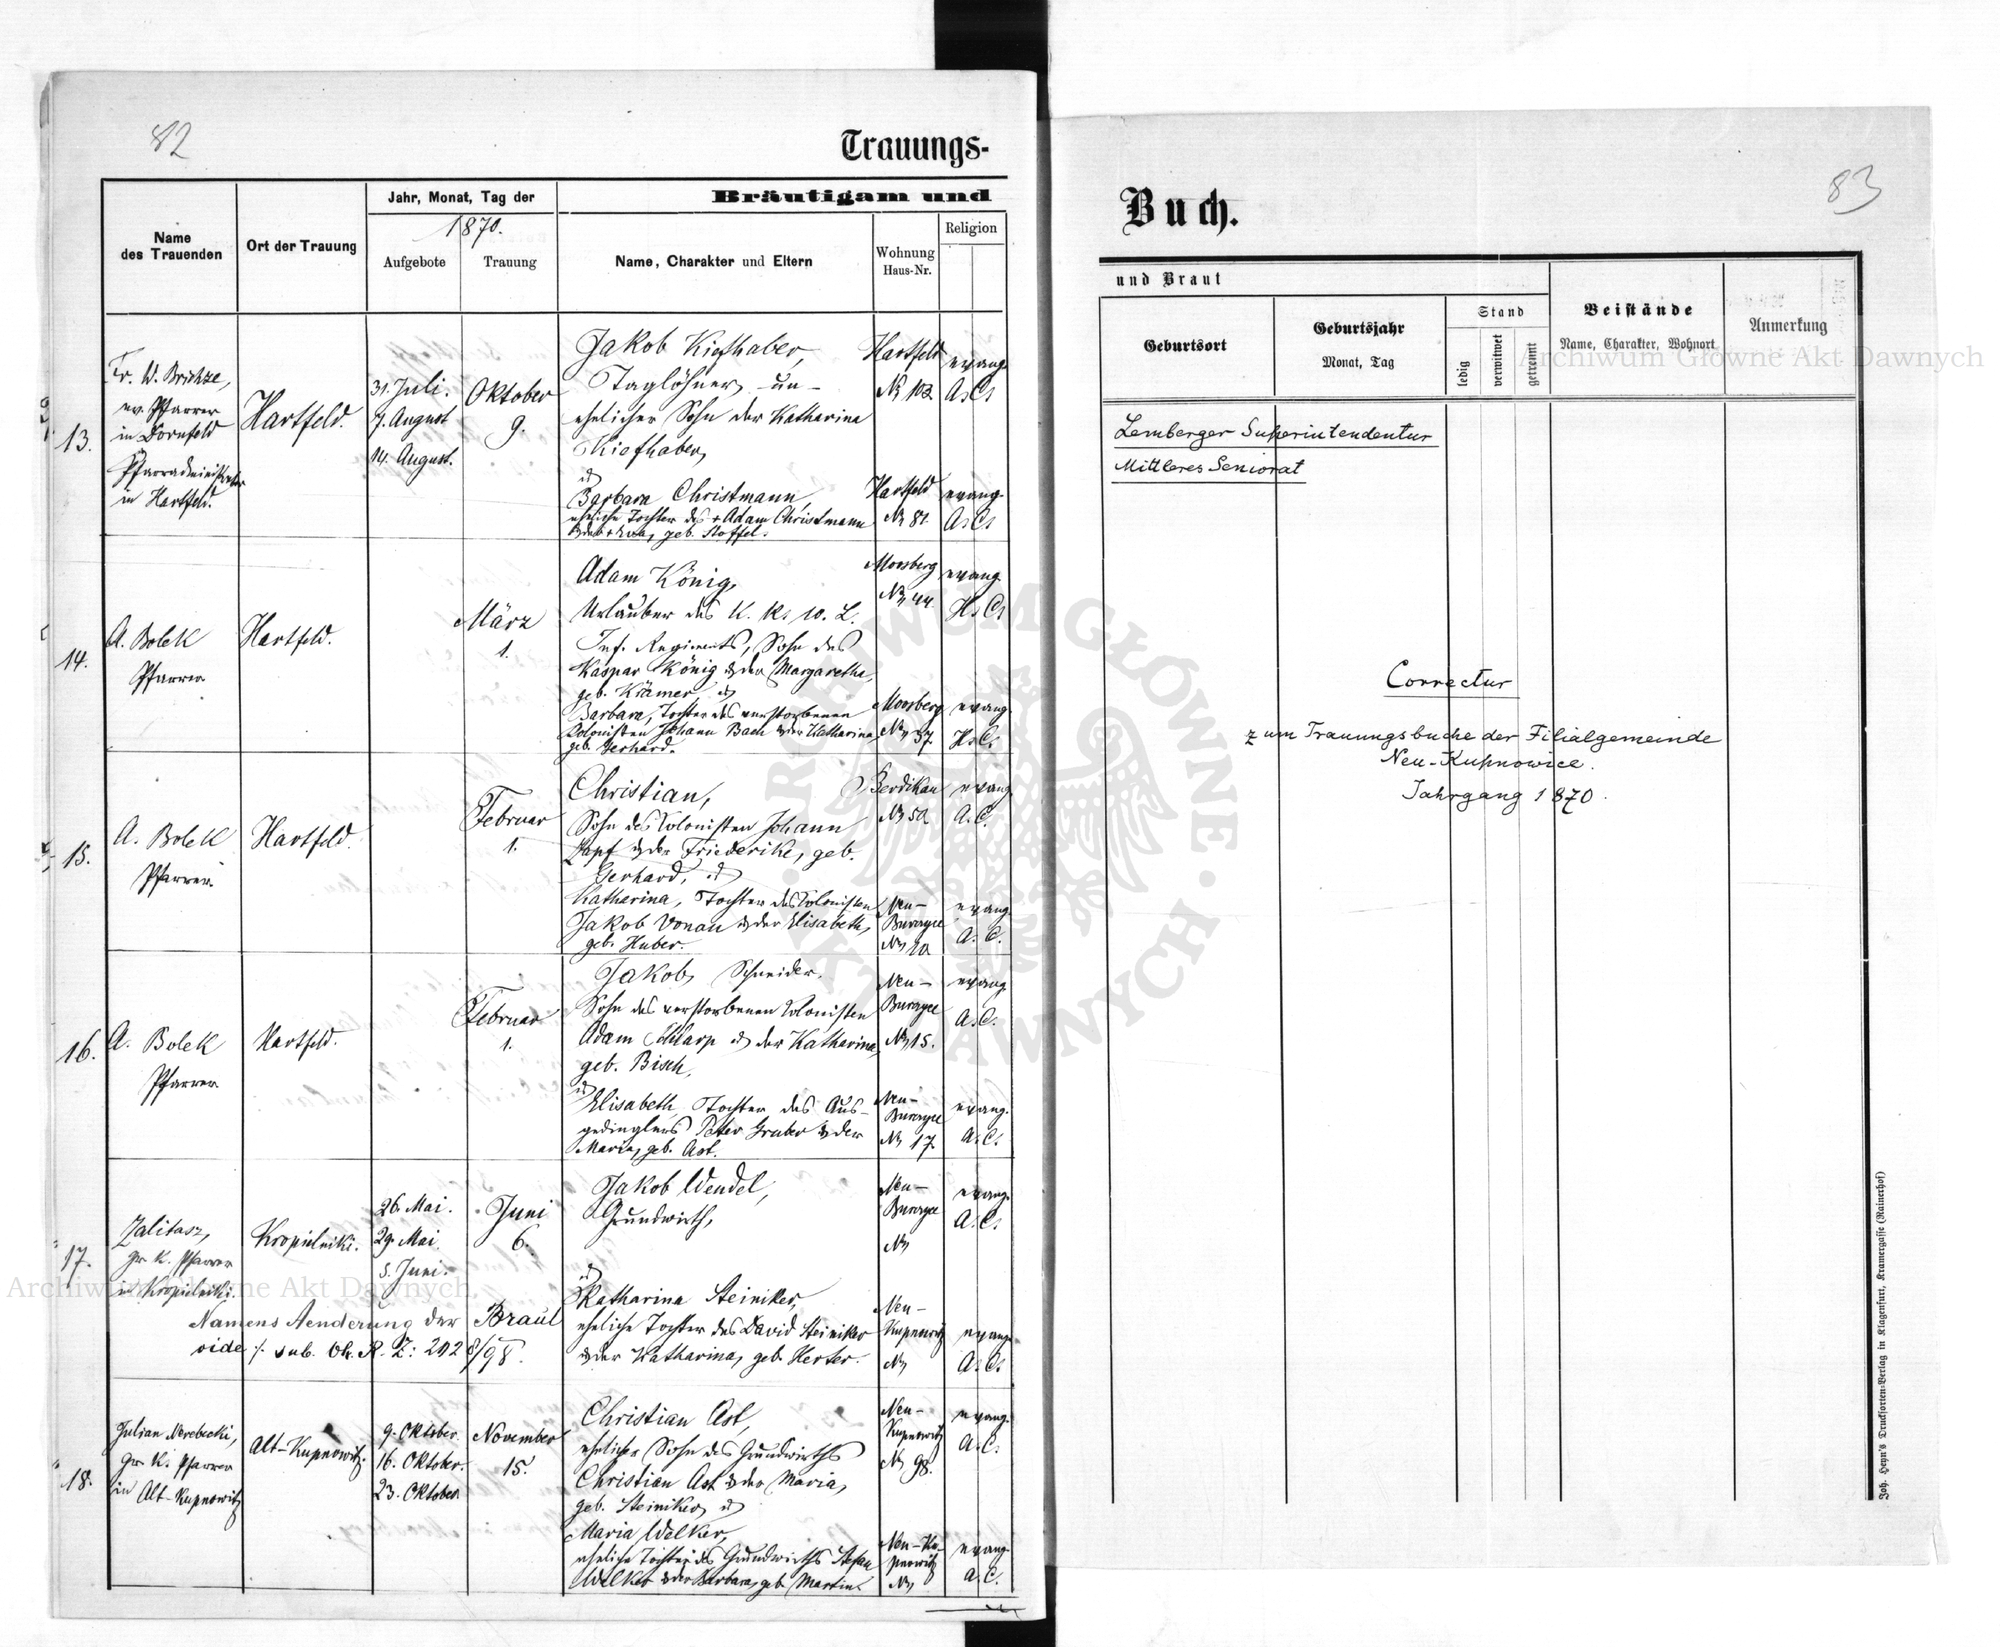 82
Trauungs-
Bräutigam und
Name
des Trauenden
Ort der Trauung
Jahr, Monat, Tag der
1870.
Aufgebote
Trauung
Name, Charakter und Eltern
Wohnung
Haus-Nr.
Religion
13.
Fr. W. Brichze,
ev. Pfarrer
in Dornfeld
Pfarradministrator
in Hartfeld.
Hartfeld.
31. Juli.
7. August
14. August.
Oktober
9.
Jakob Kiefhaber,
Taglöhner, un-
ehelicher Sohn der Katharina
Kiefhaber,
Hartfeld
No 103.
evang.
A. C.
Barbara Christmann,
eheliche Tochter des + Adam Christmann
geb. Stoffel.
Hartfeld
No 81.
evang.
A. C.
14.
A. Bolek
Pfarrer
Hartfeld.
März
1.
Adam König,
Urlauber des K. K. 10. L.
Inf. Regiments, Sohn des
Kaspar König & der Margaretha,
geb. Krämer, &
Barbara, Tochter des verstorbenen
Kolonisten Johann Bach & der Katharina,
geb. Gerhard.
Moosberg
No 44.
evang.
H. C.
Moosberg
No 37.
evang.
H. C.
15.
A. Bolek
Pfarrer.
Hartfeld.
Februar
1.
Christian,
Sohn des Kolonisten Johann
Zapf & der Friederike, geb.
Gerhard, &
Katharina, Tochter des Kolonisten
Jakob Vonau & der Elisabeth,
geb. Huber.
Berdikau
No 50.
evang.
A. C.
Neu-
Burczyce
No 10
evang.
A. C.
16.
A. Bolek
Pfarrer
Hartfeld.
Februar
1.
Jakob, Schneider.
Sohn des verstorbenen Kolonisten
Adam Schlarp & der Katharina,
geb. Bisch,
&
Elisabeth, Tochter des Aus-
gedinglers Peter Gruber & der
Maria, geb. Ast.
Neu-
Burczyce
No 15.
evang.
A. C.
Neu-
Burczyce
No 17.
evang.
A. C.
17.
Zalitasz,
gr. k. Pfarrer
in Kropielniki.
Kropielniki.
26. Mai.
29. Mai.
5. Juni.
Juni
6.
Jakob Wendel,
Grundwirth,
&
Katharina Steiniker,
eheliche Tochter des David Steiniker
& der Katharina, geb. Herter.
Neu-
Burczyce
No
evang.
A. C.
Neu-
Kupnowitz
No
evang.
A. C.
Namens Aenderung der Braut
vide ·/. sub. Ok. R. Z: 2428/98.
18.
Julian Nerebecki,
gr. k. Pfarrer
in Alt-Kupnowitz
Alt-Kupnowitz.
9. Oktober.
16. Oktober.
23. Oktober
November
15.
Christian Ast,
ehelicher Sohn des Grundwirths
Christian Ast & der Maria,
geb. Steiniker, &
Maria Welker,
eheliche Tochter des Grundwirths Stefan
Welker & der Barbara, geb. Martin.
Neu-
Kupnowitz
No 98.
evang.
A. C.
Neu-Ku-
pnowitz
No
evang.
A. C.
83
Buch.
und Braut
Geburtsort
Geburtsjahr
Monat, Tag
Stand
ledig
verwitwet
getrennt
Beistände
Name, Charakter, Wohnort
Anmerkung
Lemberger Superintendentur
Mittleres Seniorat
Correctur
zum Trauungsbuche der Filialgemeinde
Neu-Kupnowice.
Jahrgang 1870.
Joh. Heyn's Drucksorten-Verlag in Klagenfurt, Kramergasse (Rainerhof)
Archiwum Główne Akt Dawnych
Archiwum Główne Akt Dawnych
ARCHIWUM GŁÓWNE AKT DAWNYCH